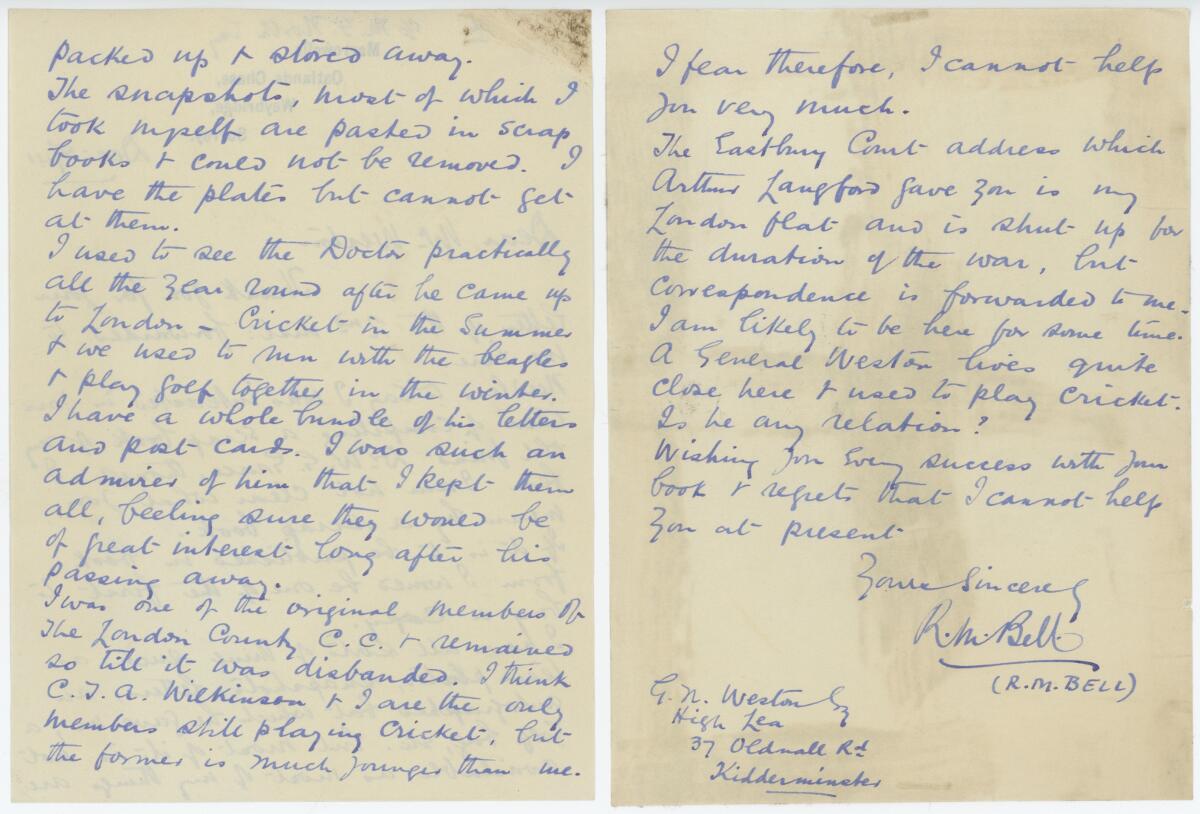 packed up & stored away.
The snapshots, most of which I
took myself are pasted in scrap
books & could not be removed. I
have the plates but cannot get
at them.
I used to see the Doctor practically
all the year round after he came up
to London – Cricket in the Summer
& we used to run with the beagles
& play golf together in the winter.
I have a whole bundle of his letters
and post cards. I was such an
admirer of him that I kept them
all, feeling sure they would be
of great interest long after his
passing away.
I was one of the original members of
The London County C.C. & remained
so till it was disbanded. I think
C.T.A. Wilkinson & I are the only
members still playing Cricket, but
the former is much younger than me.
I fear therefore, I cannot help
you very much.
The Eastbury Court address which
Arthur Langford gave you is my
London flat and is shut up for
the duration of the war, but
correspondence is forwarded to me.
I am likely to be here for some time.
A General Weston lives quite
close here & used to play cricket.
Is he any relation?
Wishing you every success with your
book & regrets that I cannot help
you at present
Yours Sincerely
R.M. Bell.
(R.M. BELL)
G. N. Weston Esq
High Lea
37 Oldnall Rd
Kidderminster